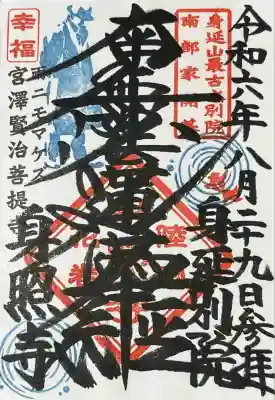 令和六年八月二十九日参拝
身延山最古の別院
南部家開基
身延別院
南無妙法蓮華経
陸
花巻
幸福
雨ニモマケズ
宮澤賢治菩提寺
身照寺